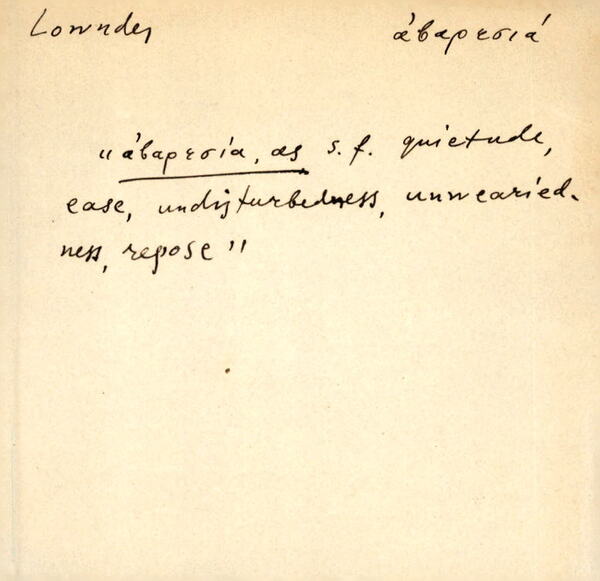 Lowndes ἀβαρεσιά
“ἀβαρεσία, ας s.f. quietude,
ease, undisturbedness, unwearied-
ness, repose”